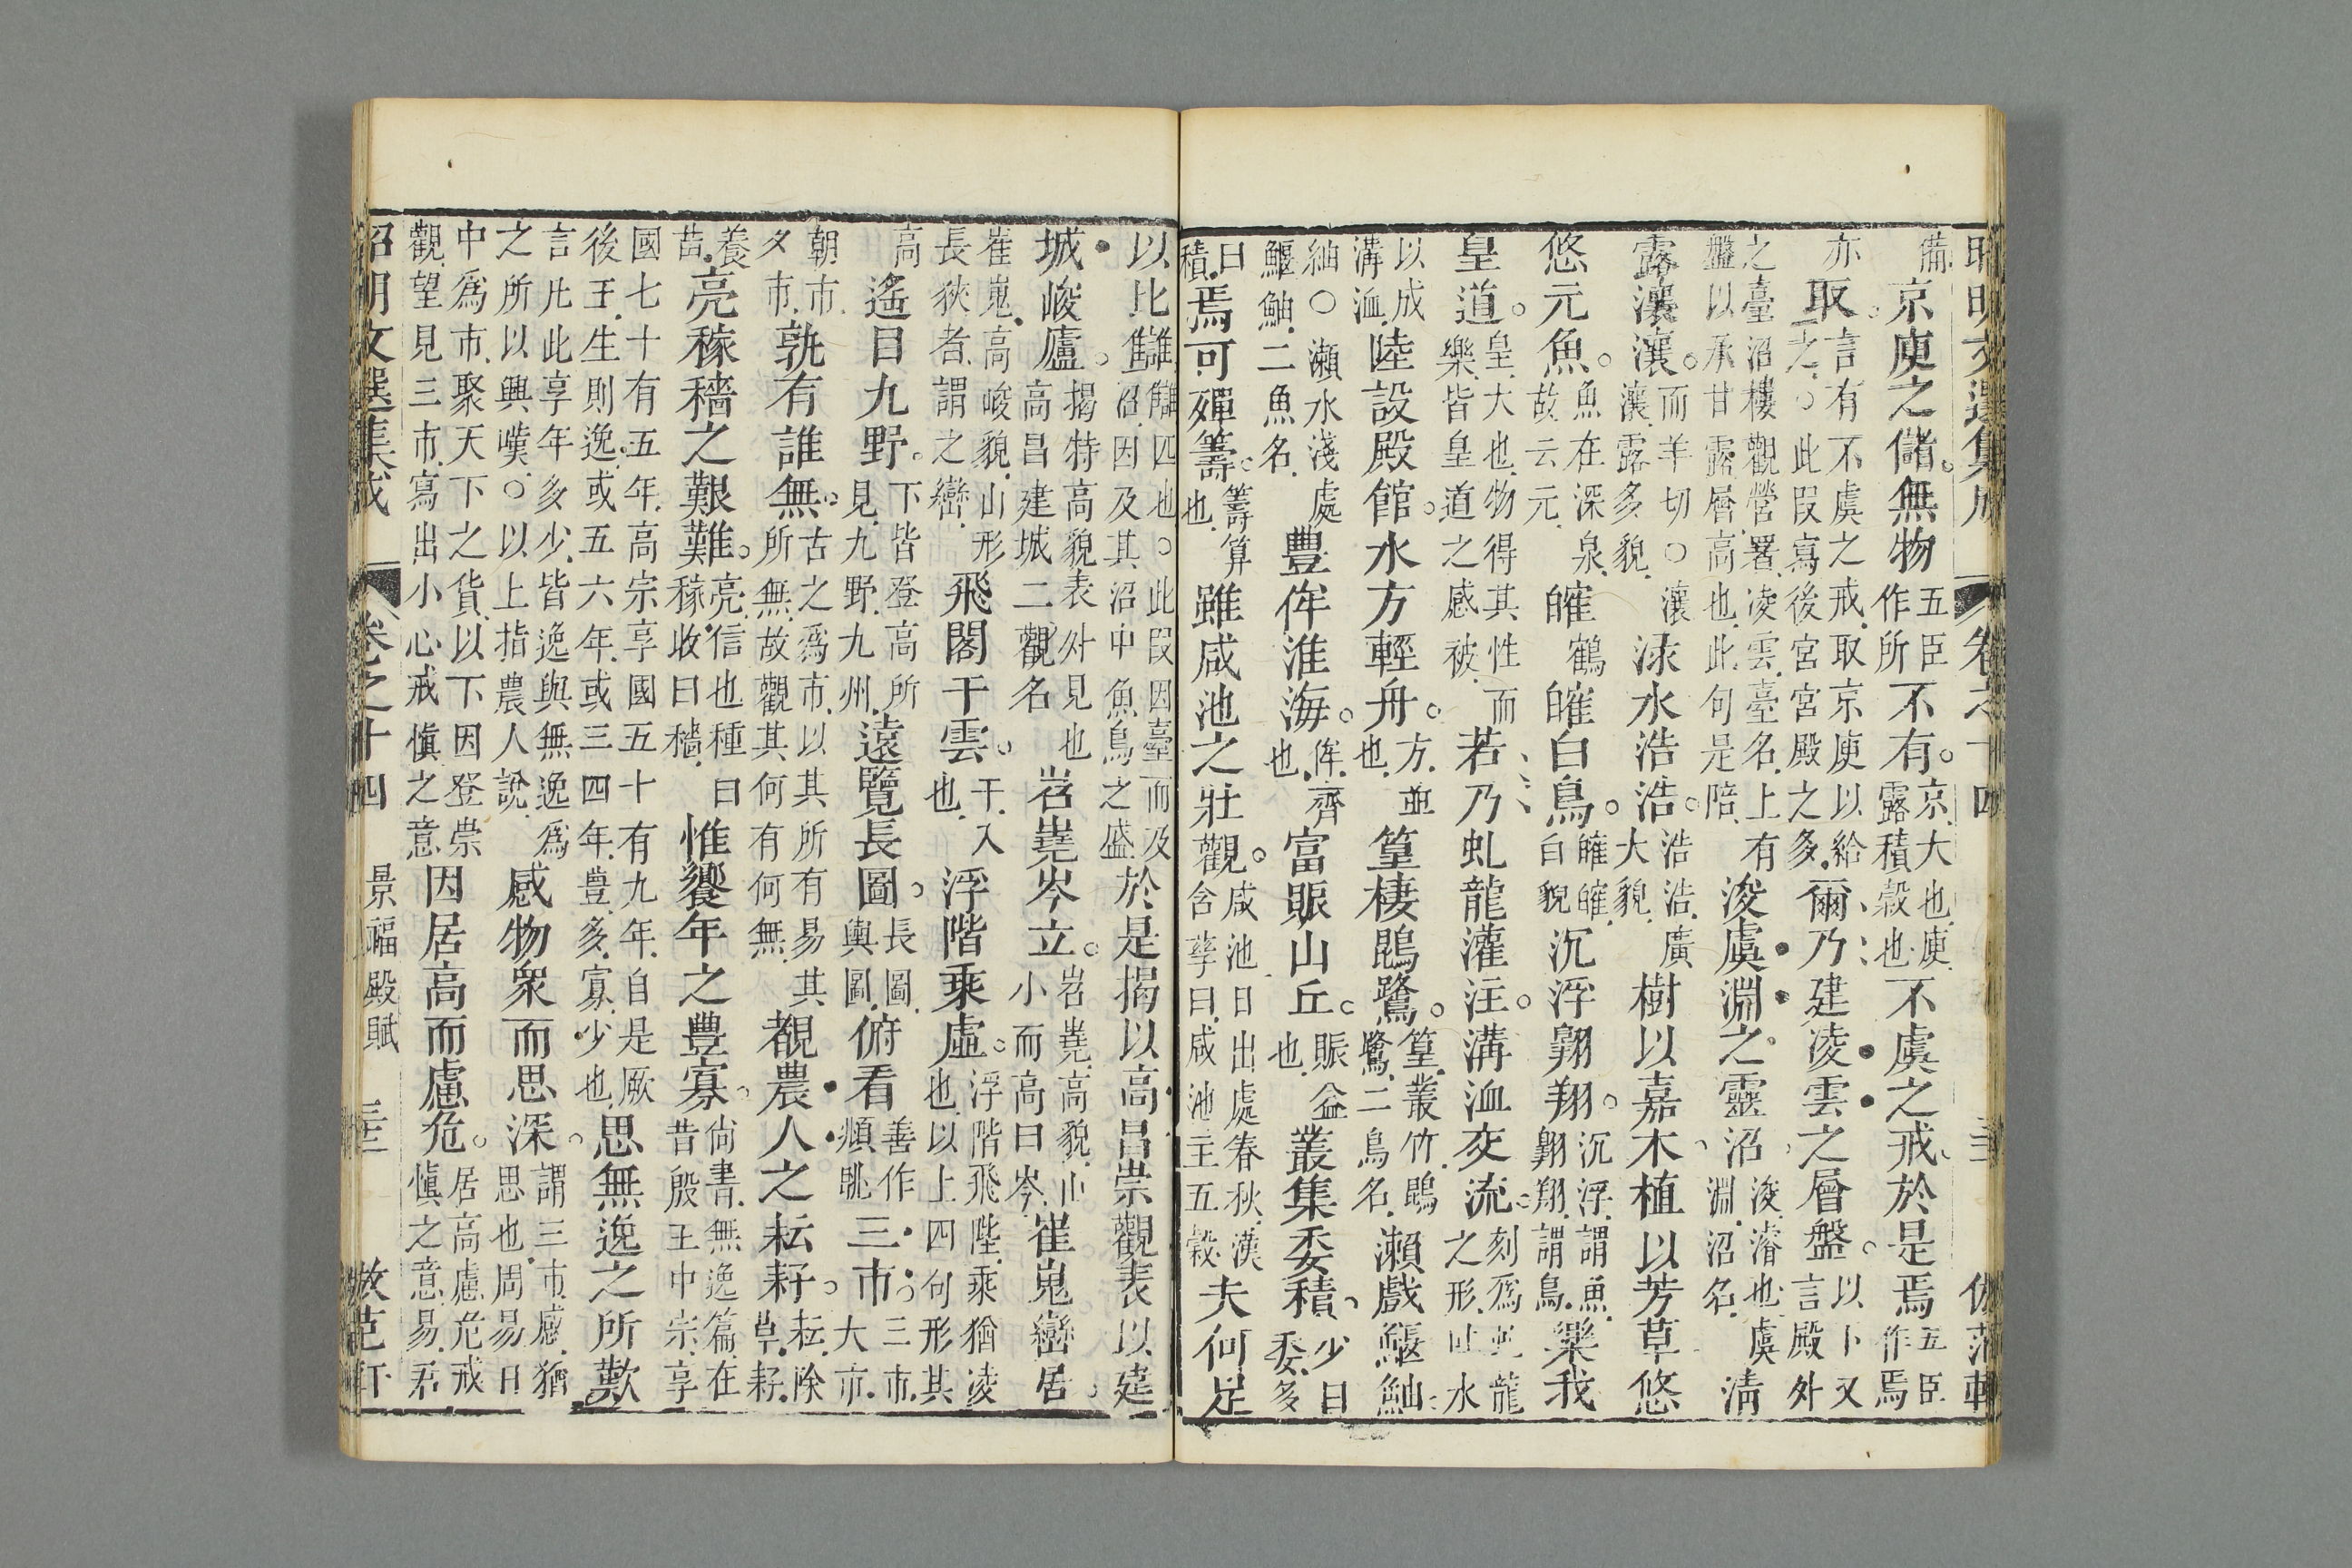 昭明文選集成 卷之十四 倣范軒
備京庾之儲。無物五臣作所不有。京大也庾露積穀也不虞之戒於是焉五臣作焉
亦取之。言有不虞之戒取京庾以給○此叚寫後宮宮殿之多爾乃建凌雲之層盤。以卜又言殿外
之臺沼樓觀營署凌雲臺名上有盤以承甘露層高也此句是陪浚虞淵之靈沼浚濬也虞淵沼名清
露瀼瀼。而羊切○瀼瀼露多貌淥水浩浩。浩浩廣大貌樹以嘉木植以芳草悠
悠元魚。魚在深泉故云元㿥鶴㿥白鳥。㿥㿥白貌沉浮翺翔。沉浮謂魚翺翔謂鳥樂我
皇道。皇大也物得其性而樂皆皇道之感被若乃虬龍灌注。溝洫交流。刻爲虬龍之形吐水
以成溝洫陸設殿館。水方輕舟。方並也篁棲鵾鷺。篁叢竹鵾鷺二鳥名瀨戲鰋鮋
鮋○瀨水淺處鰋鮋二魚名豐侔淮海。侔齊也富賑山丘。賑益也叢集委積少曰委多
曰積焉可殫籌。籌算也雖咸池之壯觀。咸池日出處春秋漢含孳曰咸池主五穀夫何足
以比讎讎讎四也○此叚因臺而及沼因及其沼中魚鳥之盛於是揭以高昌崇觀表以建
城峻廬。揭特高貌表外見也高昌建城二觀名岧嶤岑立。岧嶤高貌山小而高曰岑崔嵬巒居。
崔嵬高峻貌山形長狹者謂之巒飛閣干雲。干入也浮階乘虛。浮階飛陛乘猶凌也以上四句形其
高遙目九野。下皆登高所見九野九州遠覽長圖。長圖輿圖俯看善作頫眺三市。三市大市
朝市夕市孰有誰無。古之爲市以其所有易其所無故觀其何有何無覩農人之耘耔。耘除草耔
養苗亮稼穡之艱難。亮信也種曰稼收曰穡惟饗年之豐寡。尙書無逸篇在昔殷王中宗享
國七十有五年高宗享國五十有九年自是厥後王生則逸或五六年或三四年豊多寡少也思無逸之所歎
言凡此享年多少皆逸與無逸爲之所以興嘆○以上指農人說感物衆而思深。謂三市感猶思也周易日
中爲市聚天下之貨以下因登崇觀望見三市寫出小心戒愼之意因居高而慮危。居高慮危戒愼之意易君
昭明文選集成 卷之十四 景福殿賦 倣范軒